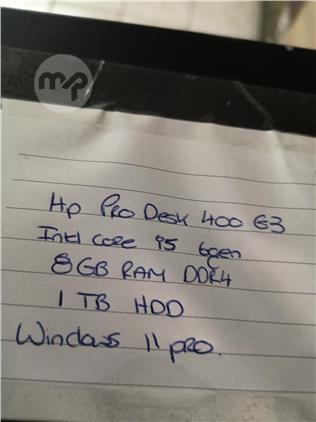 mp
Hp ProDesk 400 G3
Intel core i5 6gen
8GB RAM DDR4
1 TB HDD
Windows 11 pro.